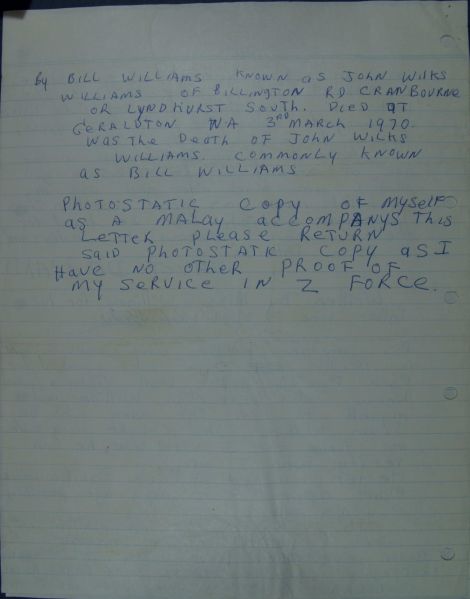 By BILL WILLIAMS KNOWN as JOHN WILKS
WILLIAMS OF BILLINGTON RD CRANBOURNE
OR LYNDHURST SOUTH. DIED AT
GERALDTON WA 3RD MARCH 1970.
WAS THE DEATH OF JOHN WILKS
WILLIAMS. COMMONLY KNOWN
as BILL WILLIAMS
PHOTOSTATIC COPY OF MYSELF
as A MALAY accompanys THIS
LETTER PLEASE RETURN
SAID PHOTOSTATIC COPY as I
HAVE NO OTHER PROOF OF
MY SERVICE IN Z FORCE.